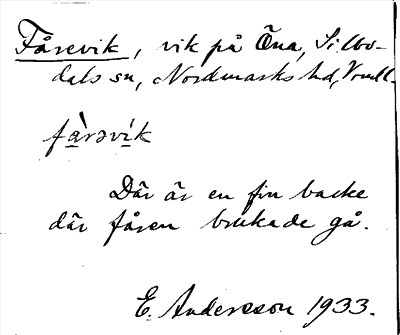 Fårevik, vik på Õna, Silbo-
dals sn, Nordmarks hd, Vrml.
fàrəvík
Där är en fin backe
där fåren brukade gå.
E. Andersson 1933.